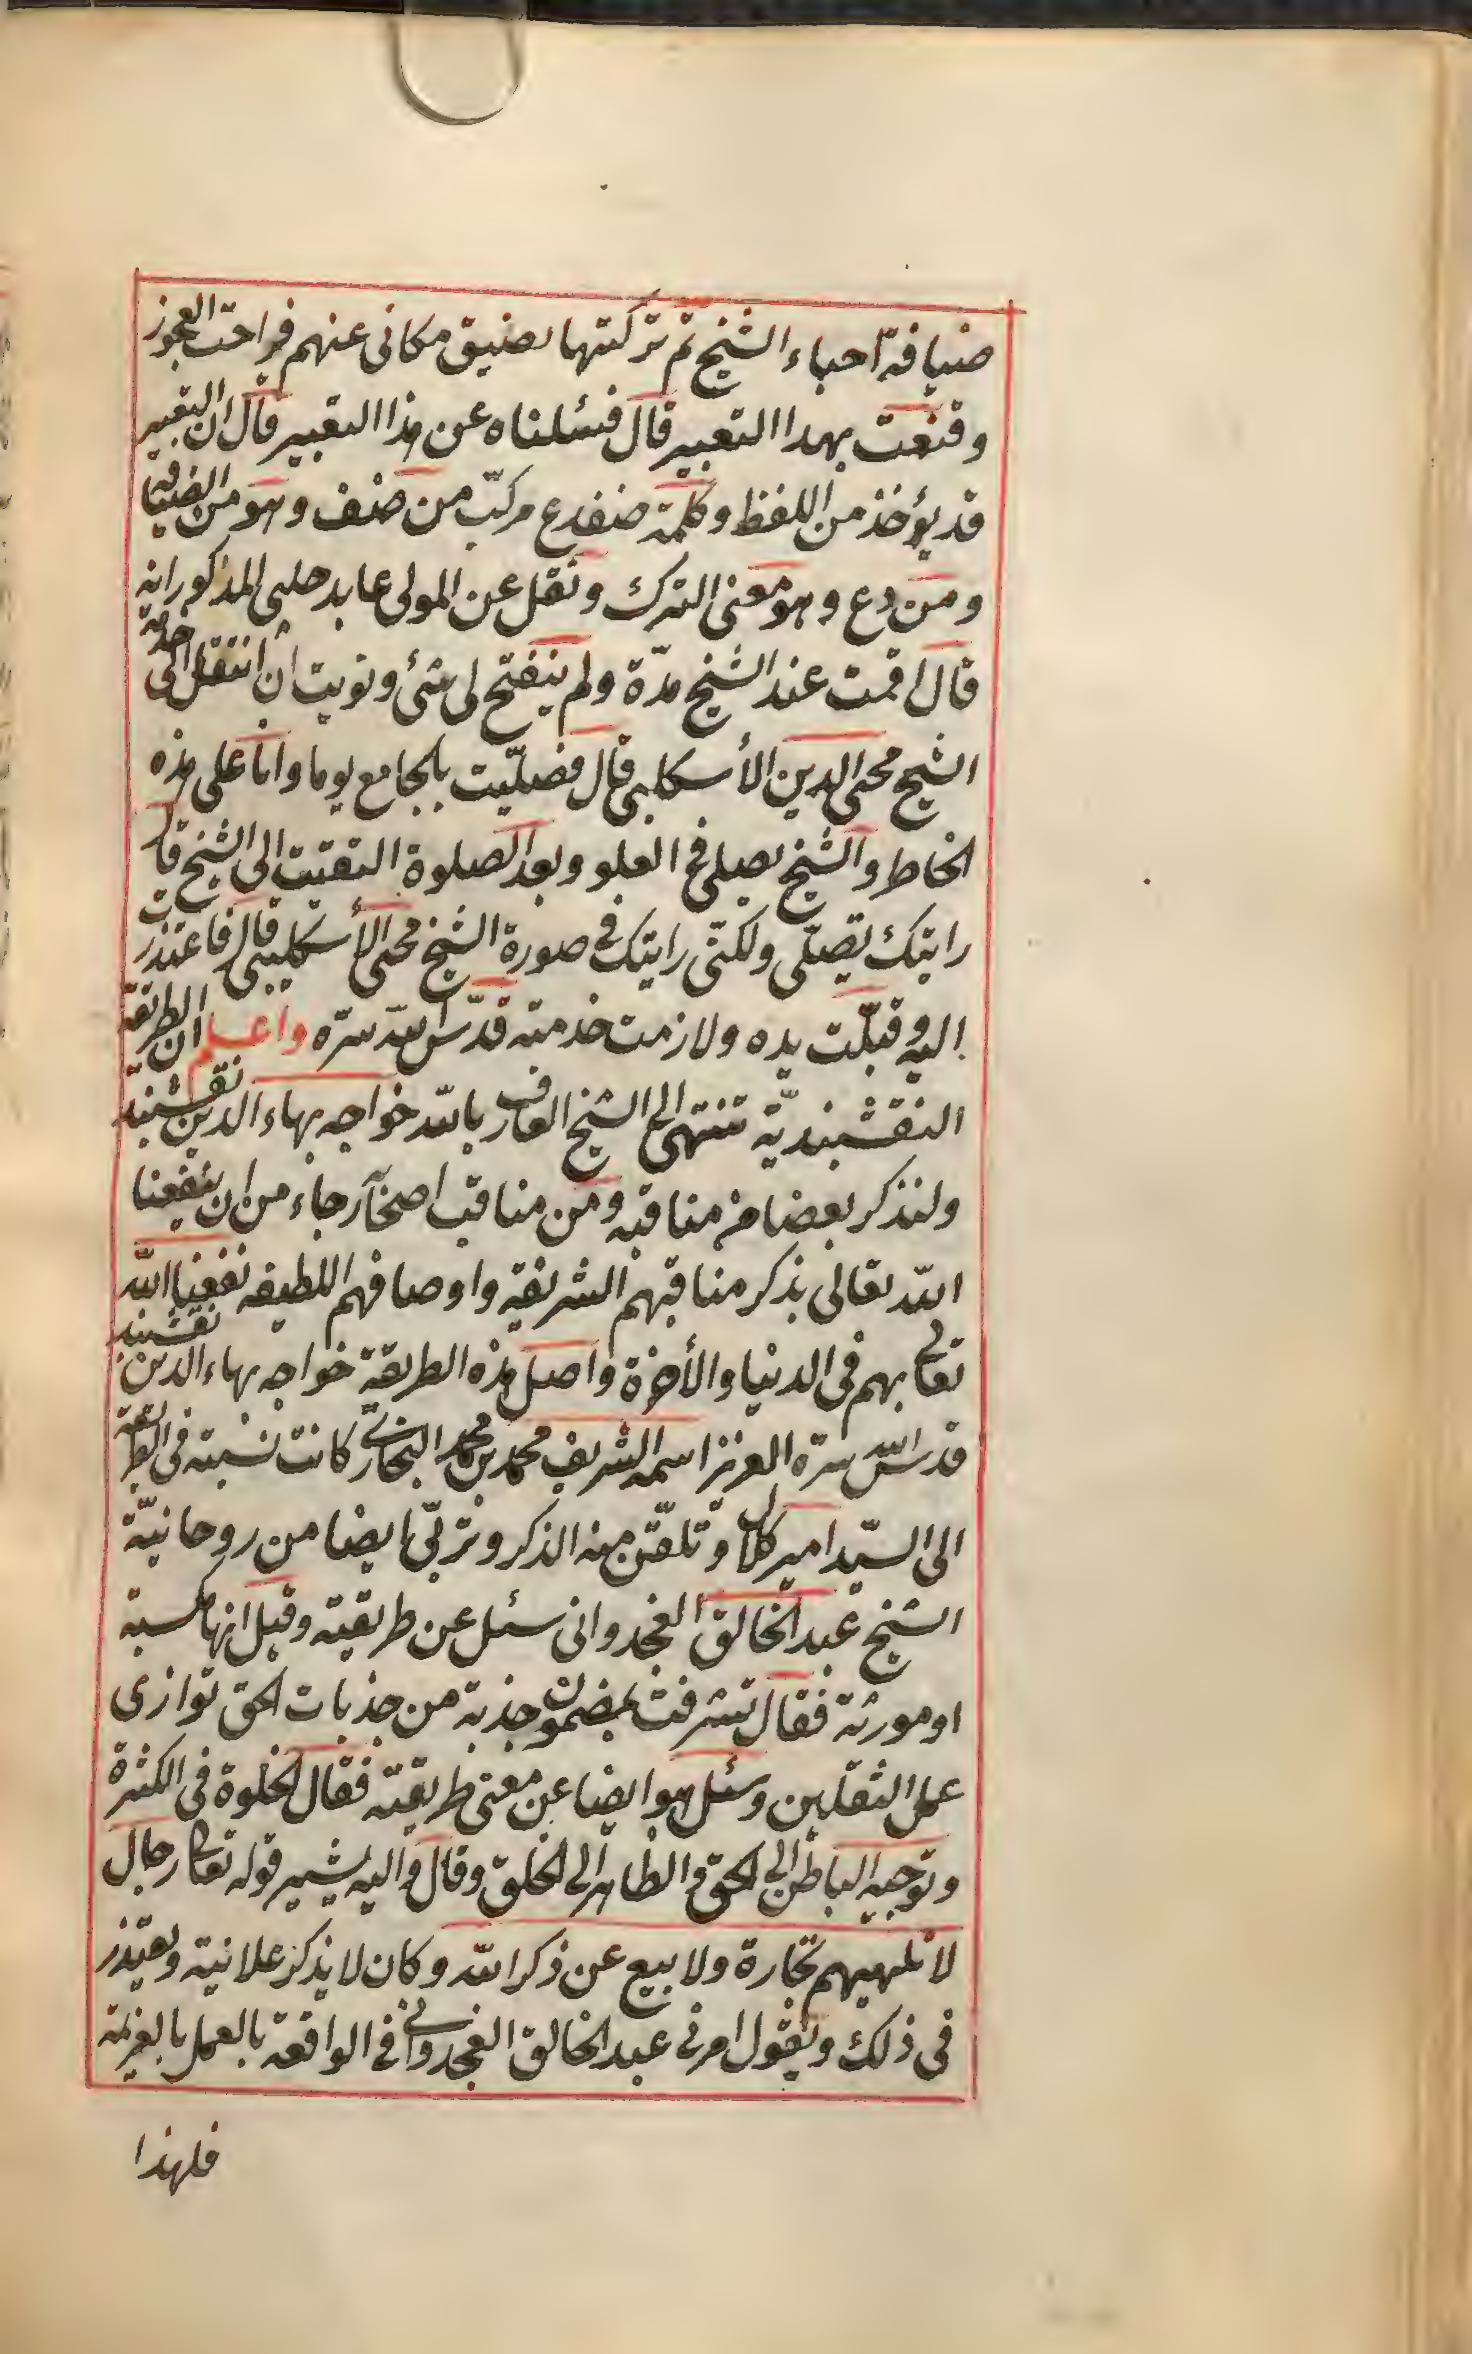 ضيافة احباء الشيخ ثم تركتها لضيق مكانى عنهم فراحت العجوز
وقنعت بهذا التعبير قال فسئلناه عن هذا التعبير قال ان التعبير
قد يؤخذ من اللفظ وكلمة ضفدع مركب من ضف وهو من الضيافة
ومن دع وهو معنى الترك ونقل عن المولى عابد چلبى المذكور انه
قال اقمت عند الشيخ مدّة ولم ينفتح لى شئ ونويت ان انتقل الى خدمة
الشيخ محيى الدين الأسكليبى قال فصلّيت بالجامع يوما وانا على هذه
الخاطر والشيخ يصلى فى العلو وبعد الصلوة التفتت الى الشيخ قال
رايتك تصلّى ولكنّى رايتك فى صورة الشيخ محيى الأسكليبى قال فاعتذرت
اليه وقبّلت يده ولازمت خدمته قدّس الله سرّه واعلم ان الطريقة
النقشبنديّة تنتهى الى الشيخ العارف بالله خواجه بهاء الدين نقشبند
ولنذكر بعضا من مناقبه ومن مناقب اصحابه رجاء من ان ينفعنا
الله تعالى بذكر مناقبهم الشريفة واوصافهم اللطيفه نفعنا الله
تعالى بهم فى الدنيا والأخرة واصل هذه الطريقة خواجه بهاء الدين نقشبند
قدس الله سره العزيز اسمه الشريف محمد بن محمد البخارى كانت نسبته فى الطريقة
الى السيّد امير كلال وتلقّن منه الذكر وتربّى ايضا من روحانيّة
الشيخ عبد الخالق الغجدوانى سئل عن طريقته وقيل انها مكسبة
او مورثة فقال تشرفت بمضمون جذبة من جذبات الحق توازى
عمل الثقلين وسئل هو ايضا عن معنى طريقته فقال الخلوة فى الكثرة
وتوجيه الباطن الى الحق والظاهر الى الخلق وقال واليه يشير قوله تعالى رجال
لا تلهيهم تجارة ولا بيع عن ذكر الله وكان لا يذكر علانية ويعتذر
فى ذلك ويقول امرنى عبد الخالق الغجدوانى فى الواقعة بالعمل بالعزيمة
فلهذا